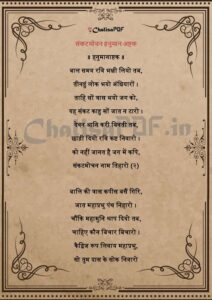 ChalisaPDF
संकटमोचन हनुमान अष्टक
॥ हनुमानाष्टक ॥
बाल समय रवि भक्षी लियो तब,
तीनहुं लोक भयो अंधियारों ।
ताहि सों त्रास भयो जग को,
यह संकट काहु सों जात न टारो ।
देवन आनि करी बिनती तब,
छाड़ी दियो रवि कष्ट निवारो ।
को नहीं जानत है जग में कपि,
संकटमोचन नाम तिहारो (२)
बालि की त्रास कपीस बसैं गिरि,
जात महाप्रभु पंथ निहारो ।
चौंकि महामुनि श्राप दियो तब,
चाहिए कौन बिचार बिचारो ।
कैद्विज रूप लिवाय महाप्रभु,
सो तुम दास के शोक निवारो
ChalisaPDF.in